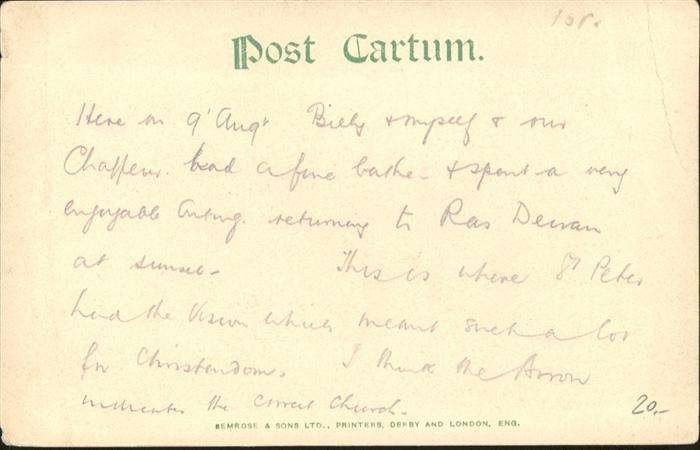 158.
Post Cartum.
Here on 9' Augt Billy & myself & our
Chaffeur had a fine bathe - & spent a very
enjoyable outing. returning to Ras Dewan
at sunset - This is where St Peter
had the Vision which meant such a lot
for Christendom. I think the Arrow
indicates the correct Church.
20.-
BEMROSE & SONS LTD., PRINTERS, DERBY AND LONDON, ENG.